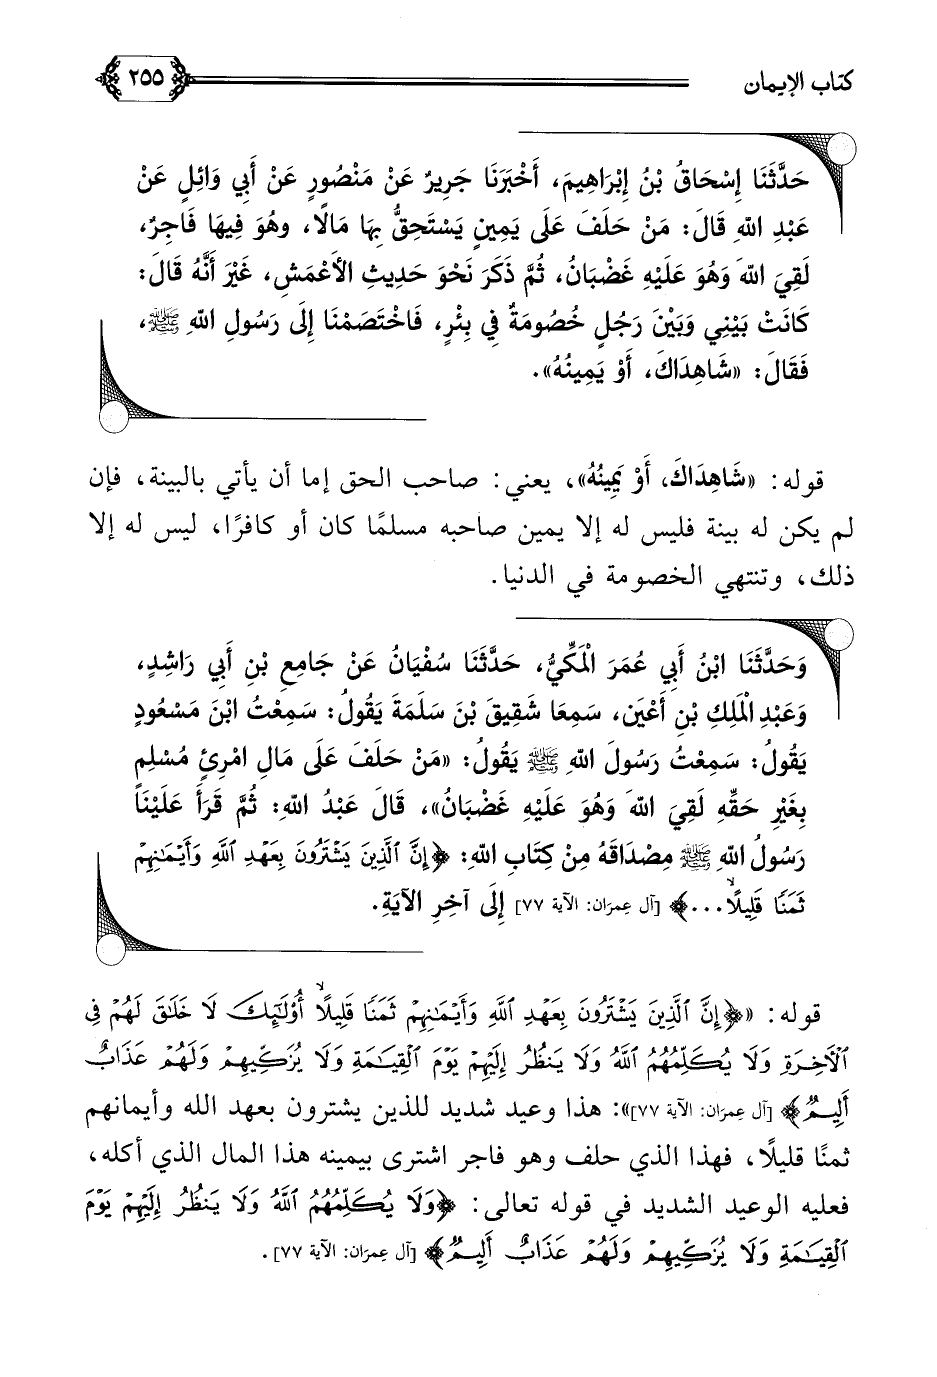 كتاب الإيمان
٢٥٥
حَدَّثَنَا إِسْحَاقُ بْنُ إِبْرَاهِيمَ، أَخْبَرَنَا جَرِيرٌ عَنْ مَنْصُورٍ عَنْ أَبِي وَائِلٍ عَنْ
عَبْدِ اللهِ قَالَ: مَنْ حَلَفَ عَلَى يَمِينٍ يَسْتَحِقُّ بِهَا مَالًا، وهُوَ فِيهَا فَاجِرٌ،
لَقِيَ اللهَ وَهُوَ عَلَيْهِ غَضْبَانُ، ثُمَّ ذَكَرَ نَحْوَ حَدِيثِ الأَعْمَشِ، غَيْرَ أَنَّهُ قَالَ:
كَانَتْ بَيْنِي وَبَيْنَ رَجُلٍ خُصُومَةٌ فِي بِئْرٍ، فَاخْتَصَمْنَا إِلَى رَسُولِ اللهِ ﷺ،
فَقَالَ: «شَاهِدَاكَ، أَوْ يَمِينُهُ».
قوله: «شَاهِدَاكَ، أَوْ يَمِينُهُ»، يعني: صاحب الحق إما أن يأتي بالبينة، فإن
لم يكن له بينة فليس له إلا يمين صاحبه مسلمًا كان أو كافرًا، ليس له إلا
ذلك، وتنتهي الخصومة في الدنيا.
وَحَدَّثَنَا ابْنُ أَبِي عُمَرَ الْمَكِّيُّ، حَدَّثَنَا سُفْيَانُ عَنْ جَامِعِ بْنِ أَبِي رَاشِدٍ،
وَعَبْدِ الْمَلِكِ بْنِ أَعْيَنَ، سَمِعَا شَقِيقَ بْنَ سَلَمَةَ يَقُولُ: سَمِعْتُ ابْنَ مَسْعُودٍ
يَقُولُ: سَمِعْتُ رَسُولَ اللهِ ﷺ يَقُولُ: «مَنْ حَلَفَ عَلَى مَالِ امْرِئٍ مُسْلِمٍ
بِغَيْرِ حَقِّهِ لَقِيَ اللهَ وَهُوَ عَلَيْهِ غَضْبَانُ»، قَالَ عَبْدُ اللهِ: ثُمَّ قَرَأَ عَلَيْنَا
رَسُولُ اللهِ ﷺ مِصْدَاقَهُ مِنْ كِتَابِ اللهِ: ﴿إِنَّ ٱلَّذِينَ يَشْتَرُونَ بِعَهْدِ ٱللَّهِ وَأَيْمَٰنِهِمْ
ثَمَنًا قَلِيلًاۙ...﴾ [آل عِمرَان: الآية ٧٧] إِلَى آخِرِ الآيَةِ.
قوله: «﴿إِنَّ ٱلَّذِينَ يَشْتَرُونَ بِعَهْدِ ٱللَّهِ وَأَيْمَٰنِهِمْ ثَمَنًا قَلِيلًاۙ أُوْلَٰٓئِكَ لَا خَلَٰقَ لَهُمْ فِي
ٱلْأَخِرَةِ وَلَا يُكَلِّمُهُمُ ٱللَّهُ وَلَا يَنظُرُ إِلَيْهِمْ يَوْمَ ٱلْقِيَٰمَةِ وَلَا يُزَكِّيهِمْ وَلَهُمْ عَذَابٌ
أَلِيمٌ﴾ [آل عِمرَان: الآية ٧٧]»: هذا وعيد شديد للذين يشترون بعهد الله وأيمانهم
ثمنًا قليلًا، فهذا الذي حلف وهو فاجر اشترى بيمينه هذا المال الذي أكله،
فعليه الوعيد الشديد في قوله تعالى: ﴿وَلَا يُكَلِّمُهُمُ ٱللَّهُ وَلَا يَنظُرُ إِلَيْهِمْ يَوْمَ
ٱلْقِيَٰمَةِ وَلَا يُزَكِّيهِمْ وَلَهُمْ عَذَابٌ أَلِيمٌ﴾ [آل عِمرَان: الآية ٧٧].